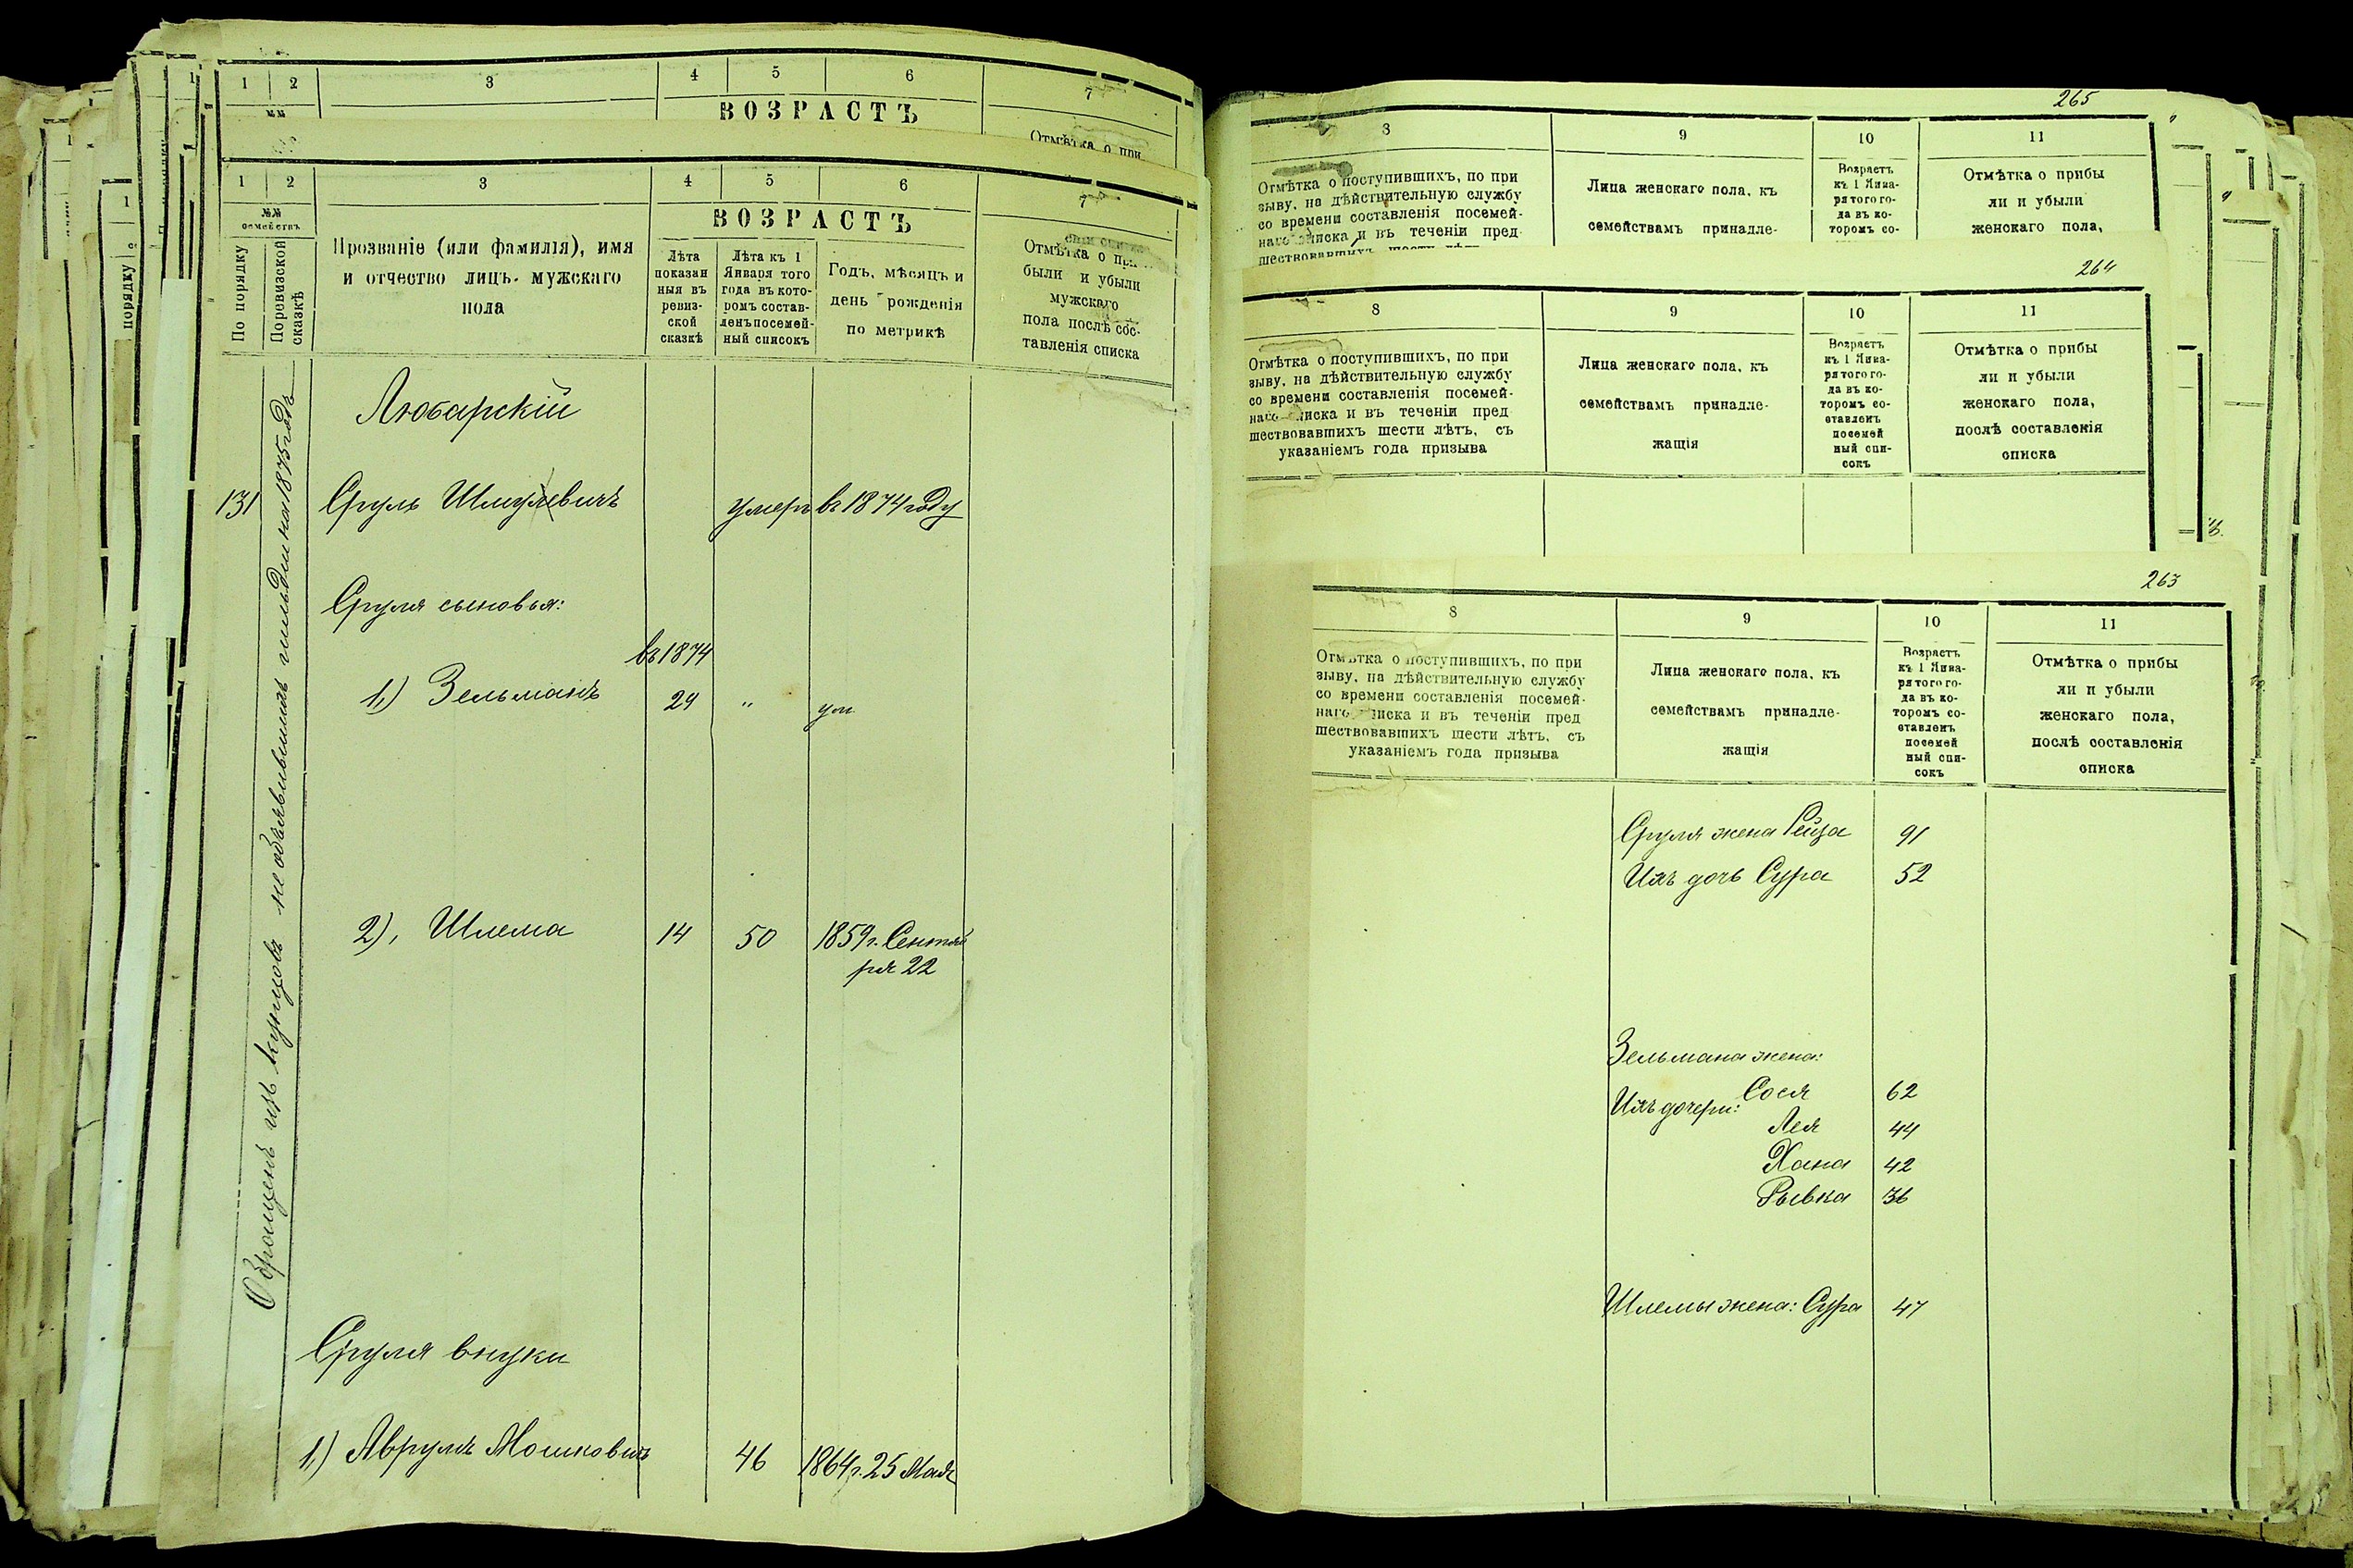 1 2 3 4 5 6 7
№№
ВОЗРАСТЪ
Отмѣтка о при
1 2 3 4 5 6 7
№№ семействъ
По порядку
По ревизской сказкѣ
Прозваніе (или фамилія), имя
и отчество лицъ мужскаго
пола
ВОЗРАСТЪ
Лѣта
показан
ныя въ
ревиз-
ской
сказкѣ
Лѣта къ 1
Января того
года въ кото-
ромъ состав-
ленъ посемей-
ный списокъ
Годъ, мѣсяцъ и
день рожденія
по метрикѣ
Отмѣтка о при
были и убыли
мужскаго
пола послѣ сос-
тавленія списка
Любарскій
131 Сруль Шмулевичъ умеръ въ 1874 году
Обращенъ изъ купцовъ не объявившихъ гильдіи на 1875 годъ
Сруля сыновья:
въ 1874
1,) Зельманъ 29 " ум
2), Шлема 14 50 1859 г. Сентяб
ря 22
Сруля внуки
1,) Аврумъ Мошковичъ 46 1864 г. 25 Мая
265
8 9 10 11
Отмѣтка о поступившихъ, по при
зыву, на дѣйствительную службу
со времени составленія посемей-
наго списка и въ теченіи пред
шествовавшихъ шести лѣтъ
Лица женскаго пола, къ
семействамъ принадле-
Возрастъ
къ 1 Янва-
ря того го-
да въ ко-
торомъ со-
Отмѣтка о прибы
ли и убыли
женскаго пола,
264
8 9 10 11
Отмѣтка о поступившихъ, по при
зыву, на дѣйствительную службу
со времени составленія посемей-
наго списка и въ теченіи пред
шествовавшихъ шести лѣтъ, съ
указаніемъ года призыва
Лица женскаго пола, къ
семействамъ принадле-
жащія
Возрастъ
къ 1 Янва-
ря того го-
да въ ко-
торомъ со-
ставленъ
посемей
ный спи-
сокъ
Отмѣтка о прибы
ли и убыли
женскаго пола,
послѣ составленія
списка
263
8 9 10 11
Отмѣтка о поступившихъ, по при
зыву, на дѣйствительную службу
со времени составленія посемей-
наго списка и въ теченіи пред
шествовавшихъ шести лѣтъ, съ
указаніемъ года призыва
Лица женскаго пола, къ
семействамъ принадле-
жащія
Возрастъ
къ 1 Янва-
ря того го-
да въ ко-
торомъ со-
ставленъ
посемей
ный спи-
сокъ
Отмѣтка о прибы
ли и убыли
женскаго пола,
послѣ составленія
списка
Сруля жена Рейза 91
Ихъ дочь Сура 52
Зельмана жена:
Сося 62
Ихъ дочери:
Лея 44
Хана 42
Рывка 36
Шлемы жена: Сура 47